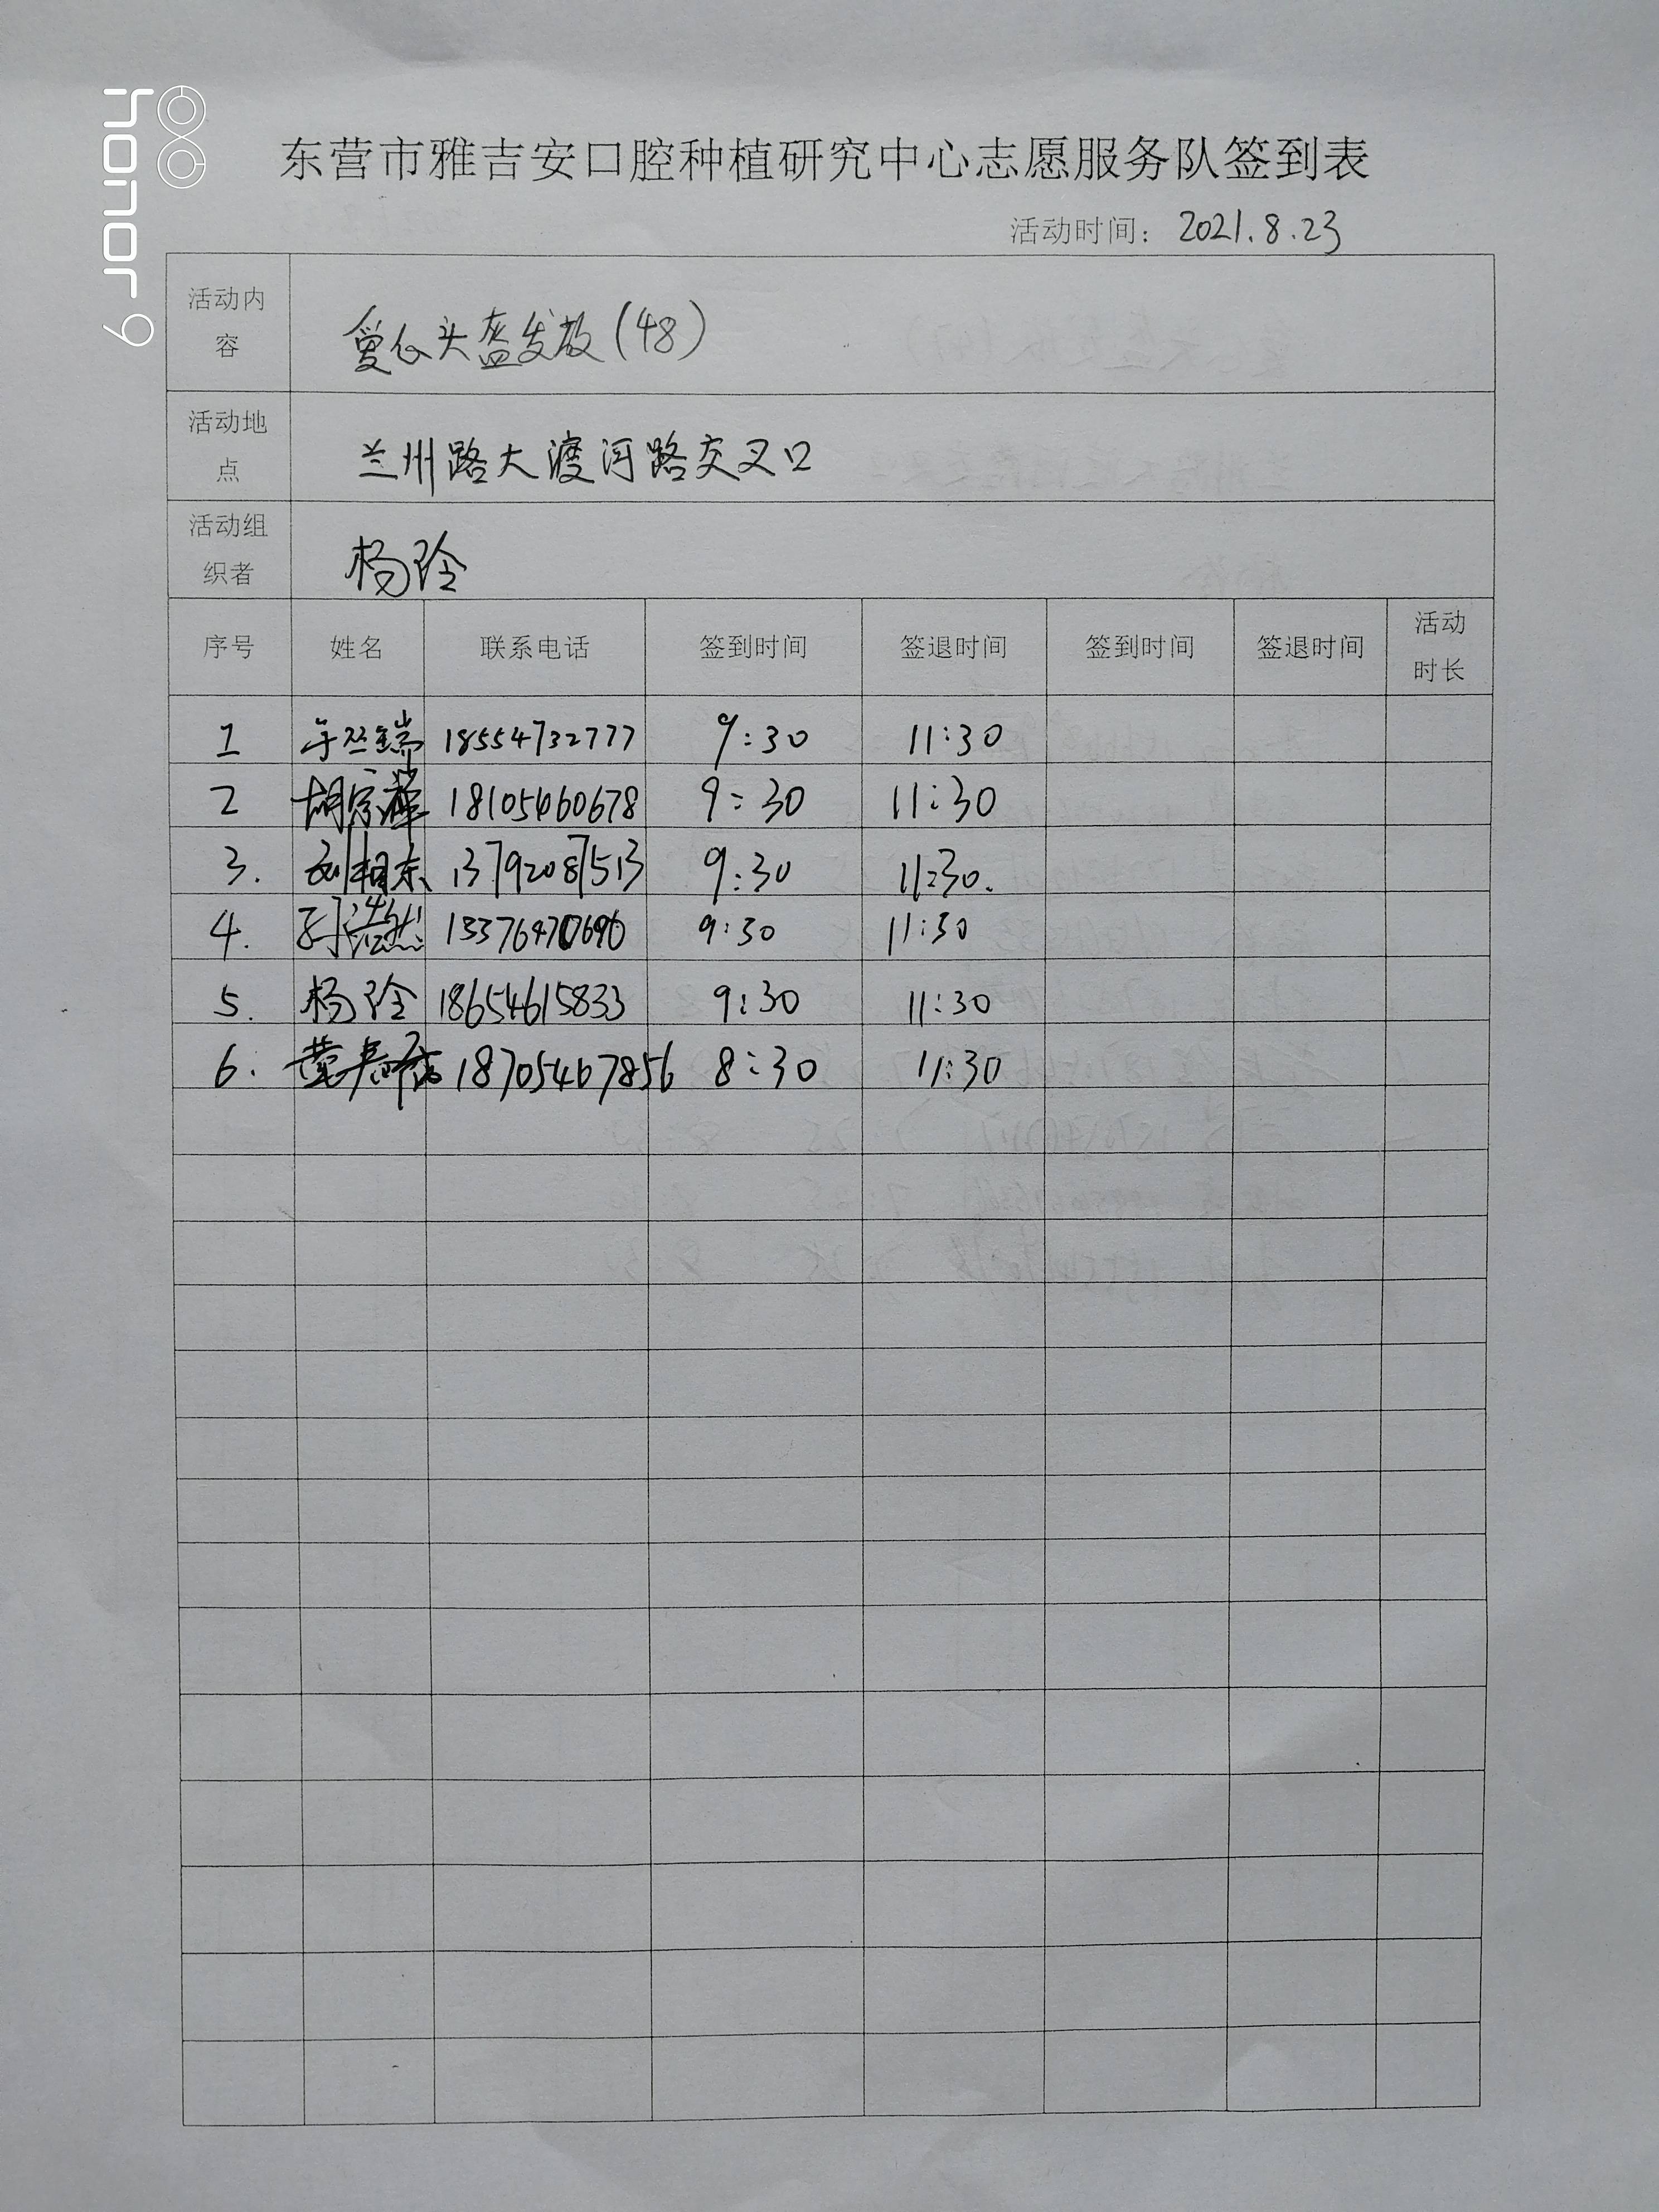 honor 9
东营市雅吉安口腔种植研究中心志愿服务队签到表
活动时间: 2021.8.23
活动内容 爱心头盔发放(48)
活动地点 兰州路大渡河路交叉口
活动组织者 杨玲
序号 姓名 联系电话 签到时间 签退时间 签到时间 签退时间 活动时长
1 18554732777 9:30 11:30
2 胡宗辉 18105460678 9:30 11:30
3. 刘相东 13792087513 9:30 11:30.
4. 孙浩然 9:30 11:30
5. 杨玲 18654615833 9:30 11:30
6. 18705467856 8:30 11:30